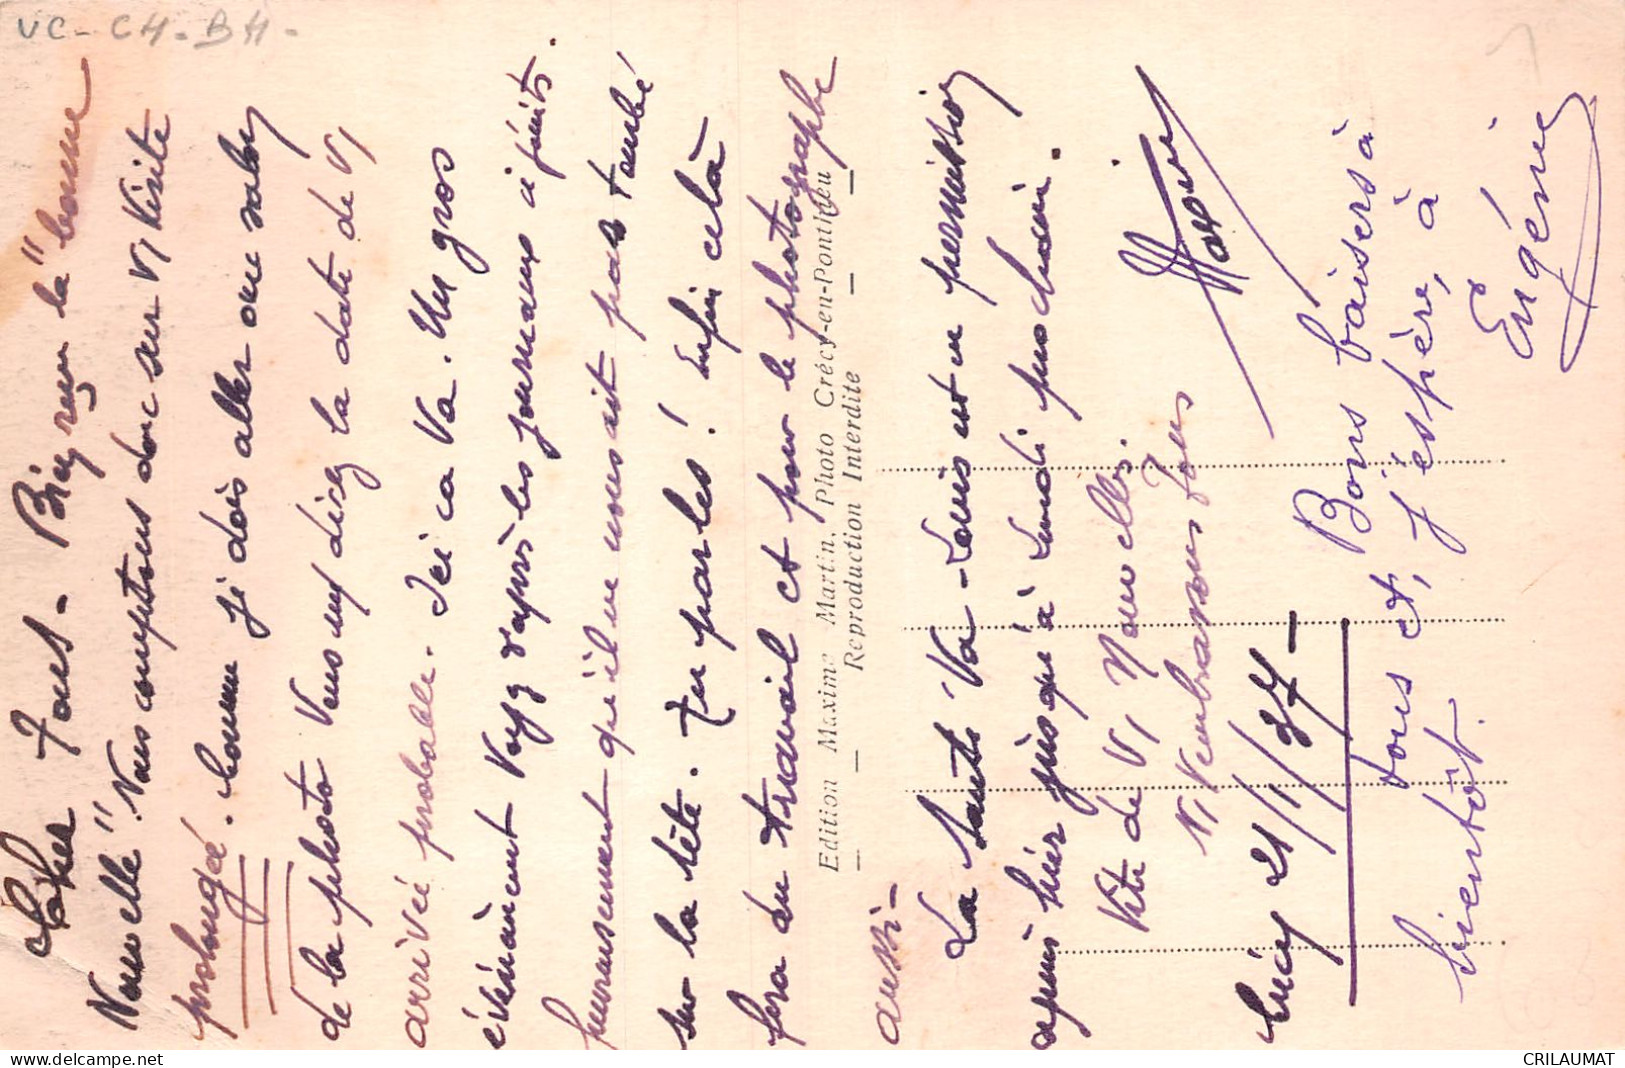 VC - CH - BH -
Cher Tous - Bien reçu la "bonne
Nouvelle" Nous comptons donc sur V/ Visite
prolongée. comme je dois aller
de la photo Vous me direz la date de V/
arrivée probable. Ici ca Va. Un gros
évènement Voyez d'après les journaux ci joints.
heureusement qu'il ne nous ait pas tombé
sur la tête. Tu parles! enfin celà
fera du travail et pour le photographe
aussi -
La Santé Va - Louis est en permission
depuis hier jusqu'à Lundi prochain.
Vite de V/ Nouvelles.
N/ Vembrassons Tous
Crécy 21/1/37 -
Bons baisers à
tous et, j'espère, à
bientôt.
Eugénie
Edition Maxime Martin, Photo Crécy-en-Ponthieu
Reproduction Interdite
CRILAUMAT